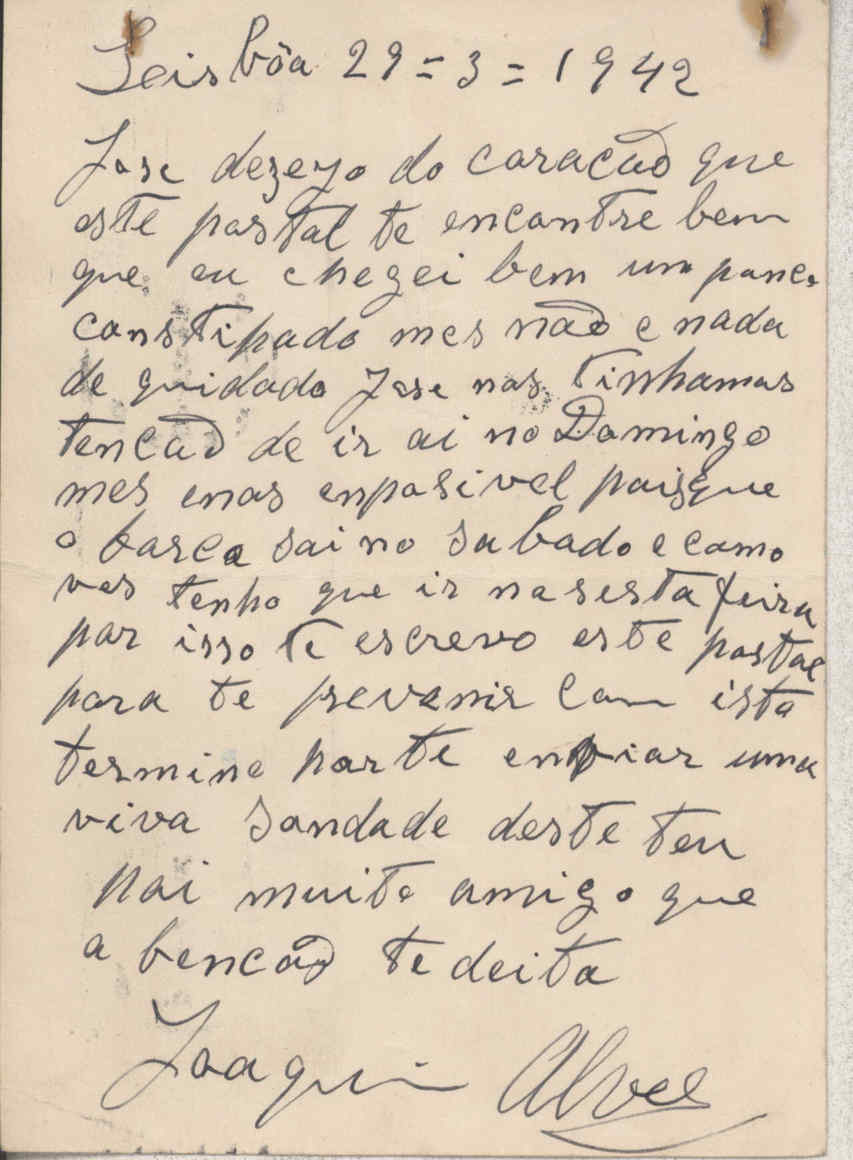 Leisbôa 29=3=1942
Jose dezeyo do coracão que
este postal te encontre bem
que eu chegei bem um pouco
constipado mes não e nada
de quidado Jose nos tinhamos
tencão de ir ai no Domingo
mes enos enposivel poisque
o barco sai no sabado e como
ves tenho que ir na sesta feira
por isso te escrevo este postal
para te prevenir com isto
termino parte enviar uma
viva saudade deste teu
pai muito amigo que
a bencão te deita
Joaquim Alves